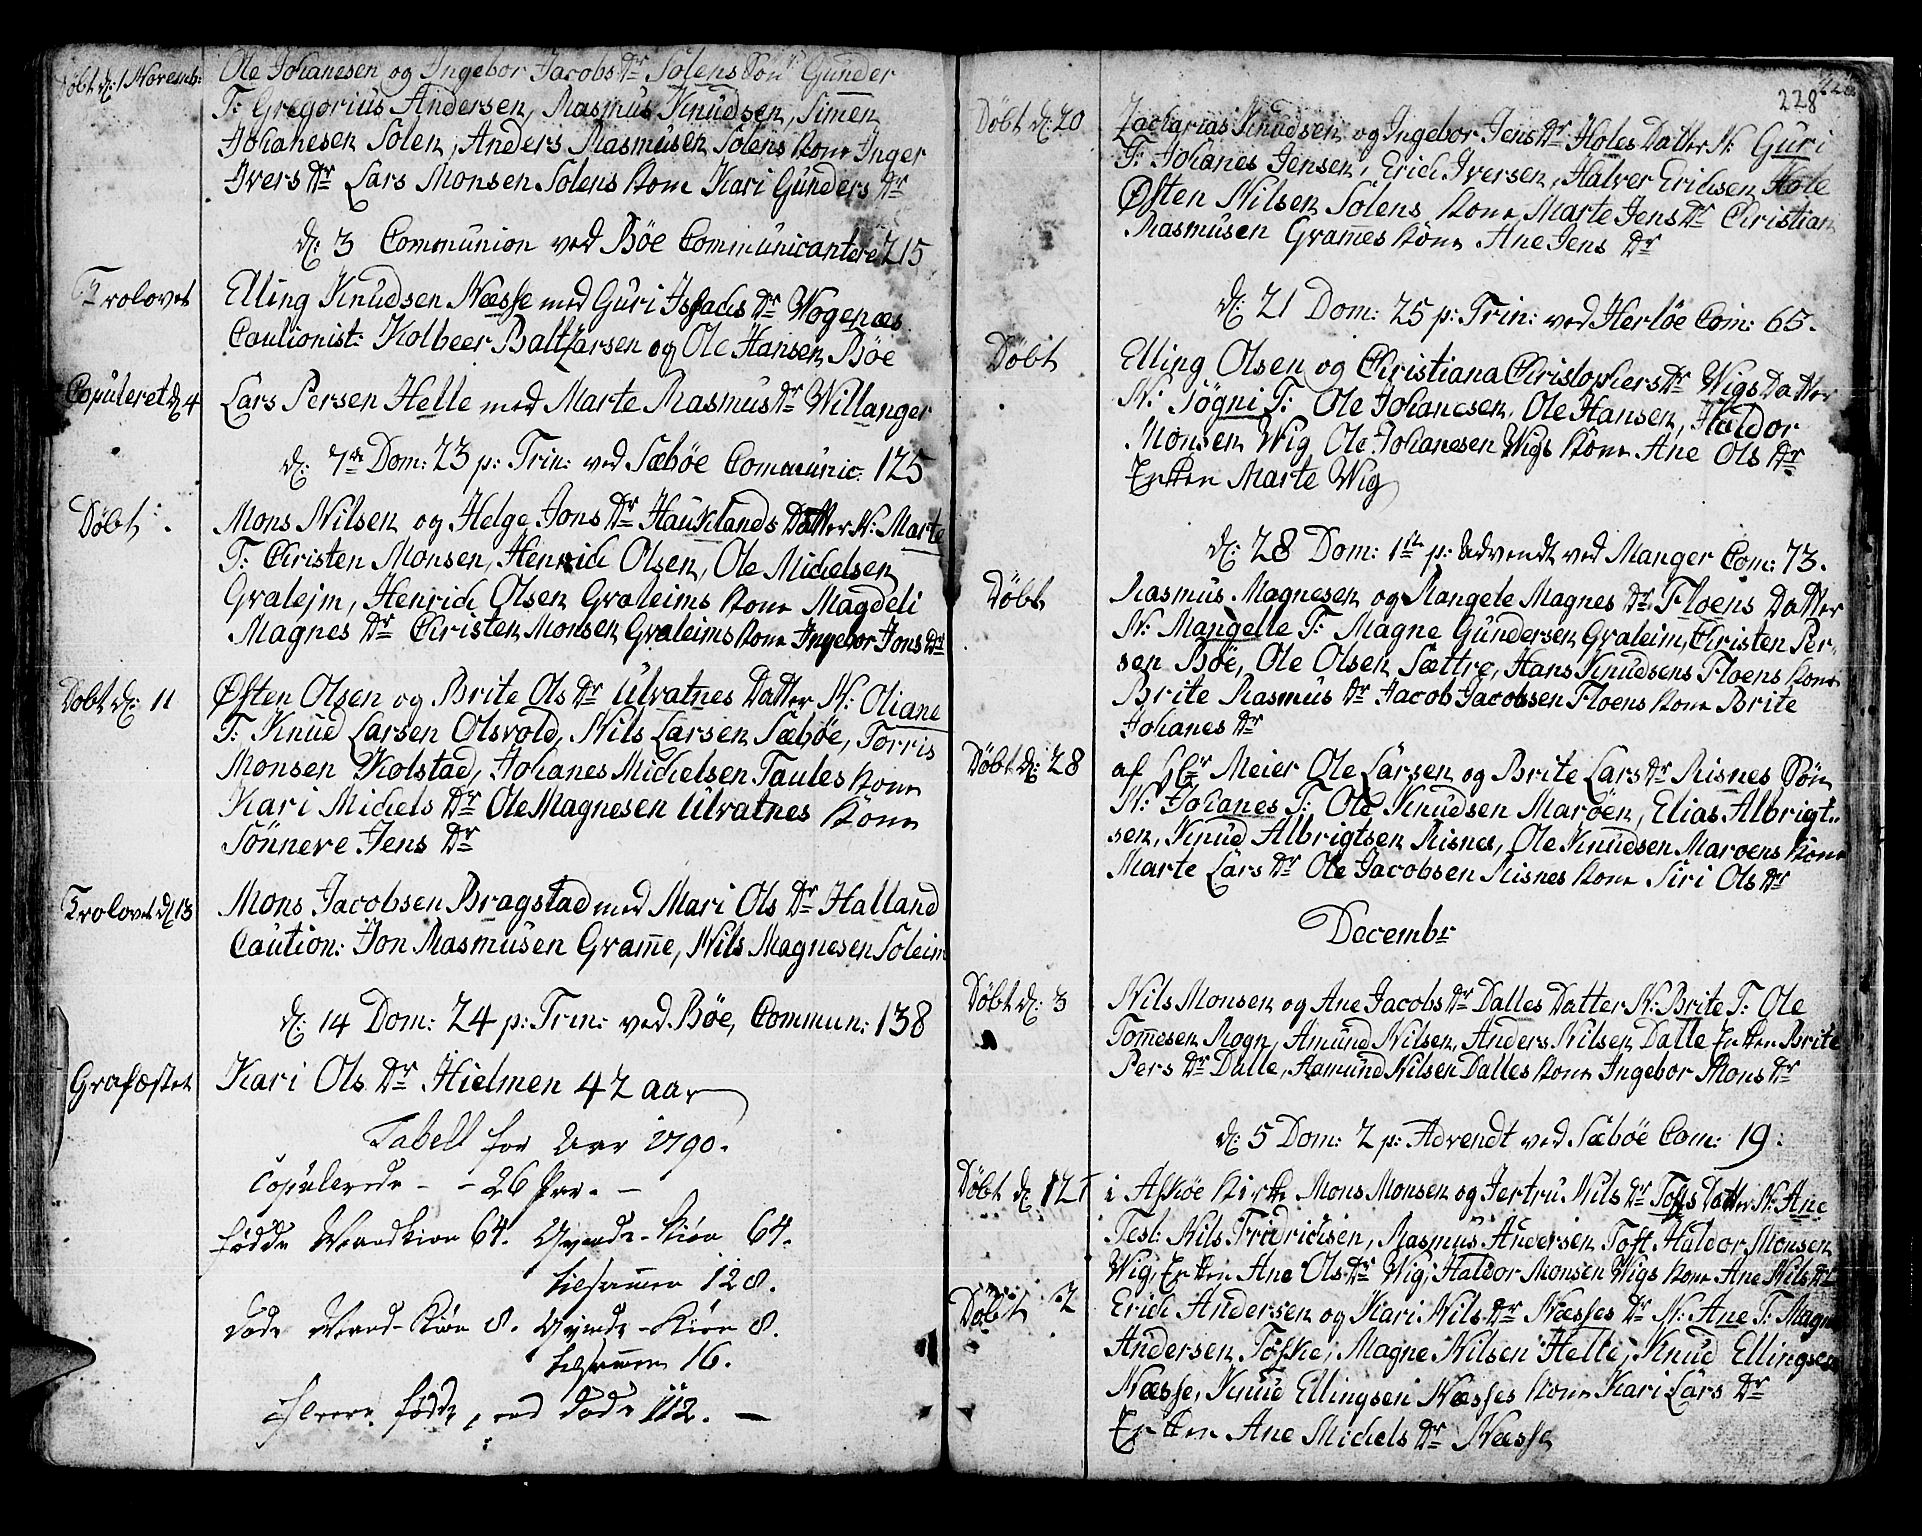 Döbt d: 1 Novemb: Ole Johanesen og Ingebor Jacobs Dr Solens Sön Gunder
T: Gregorius Andersen, Rasmus Knudsen, Simen
Johanesen Solen, Anders Rasmusen Solens Kone Inger
Ivers Dr Lars Monsen Solens Kone Kari Gunders Dr
d: 3 Communion ved Böe Communicantere 215
Trolovet Elling Knudsen Næsse med Guri Issachs Dr Vogenæs
Cautionist: Kolbeer Baltzarsen og Ole Hansen Böe
Copuleret d 4 Lars Persen Helle med Marte Rasmus Dr Willanger
d: 7de Dom: 23 p: Trin: ved Sæböe Communic: 125
Döbt: Mons Nilsen og Helge Jons Dr Hauklands Datter N: Marte
T: Christen Monsen, Henrich Olsen, Ole Michelsen
Gralejm, Henrich Olsen Graleims Kone Magdeli
Magnes Dr Christen Monsen Graleims Kone Ingebor Jons Dr
Döbt d: 11 Østen Olsen og Brite Ols Dr Ulvatnes Datter N: Oliane
T: Knud Larsen Olsvold, Nils Larsen Sæböe, Torris
Monsen Kolstad, Johanes Michelsen Taules Kone
Kari Michels Dr Ole Magnesen Ulvatnes Kone
Sönneve Jens Dr
Trolovet d 13 Mons Jacobsen Bragstad med Mari Ols Dr Halland
Caution: Jon Rasmusen Grame, Nils Magnesen Soleim
d: 14 Dom: 24 p: Trin: ved Böe, Commun: 138
Grafæstet Kari Ols Dr Hielmen 42 aar
Tabell for Aar 1790.
Copulerede - - 26 Par. -
födde Mandkiön 64. Qvinde-Kiön 64.
tilsamen 128.
Döde Mand-Kiön 8. Qvinde-Kiön 8.
tilsamen 16.
Fleere födde, end döde 112. -
228
Döbt d: 20 Zacharias Knudsen og Ingebor Jens Dr Holes Datter N: Guri
T: Johanes Jensen, Erich Iversen, Halver Erichsen Hole
Østen Nilsen Solens Kone Marte Jens Dr Christian
Rasmusen Grames Kone Ane Jens Dr
d: 21 Dom: 25 p: Trin: ved Herlöe Com: 65.
Döbt Elling Olsen og Christiana Christophers Dr Wigs Datter
N: Sögni T: Ole Johanesen, Ole Hansen, Haldor
Monsen Wig, Ole Johanesen Wigs Kone Ane Ols Dr
Enken Marte Wig
d: 28 Dom: 1ste p: Advendt ved Manger Com: 73.
Döbt Rasmus Magnesen og Rangele Magnes Dr Floens Datter
N: Mangelle T: Magne Gundersen Graleim, Christen Per-
sen Böe, Ole Olsen Sættre, Hans Knudsens Floens Kone
Brite Rasmus Dr Jacob Jacobsen Floens Kone Brite
Johanes Dr
Döbt d: 28 af Hr Meier Ole Larsen og Brite Lars Dr Risnes Sön
N: Johanes T: Ole Knudsen Maröen, Elias Albrigt-
sen, Knud Albrigtsen Risnes, Ole Knudsen Maroens Kone
Marte Lars Dr Ole Jacobsen Risnes Kone Siri Ols Dr
Decembr
Döbt d: 3 Nils Monsen og Ane Jacobs Dr Dalles Datter N: Brite T: Ole
Tomesen Rogn, Amund Nilsen, Anders Nilsen Dalle Enken Brite
Pers Dr Dalle, Hamund Nilsen Dalles Kone Ingebor Mons Dr
d: 5 Dom: 2 p: Advendt ved Sæböe Com: 19:
Döbt d: 12 i Asköe Kirke Mons Monsen og Jertru Nils Dr Tofts Datter N: Ane
Test: Nils Fridrichsen, Rasmus Andersen Toft Haldor Monsen
Wig, Enken Ane Ols Dr Wig, Haldor Monsen Wigs Kone Ane Nils Dr
Döbt 2 Erich Andersen og Kari Nils Dr Næsses Dr N: Ane T: Magne
Andersen Toske, Magne Nilsen Helle, Knud Ellingsen
Næsse, Knud Ellingsen Næsses Kone Kari Lars Dr
Enken Ane Michels Dr Næsse